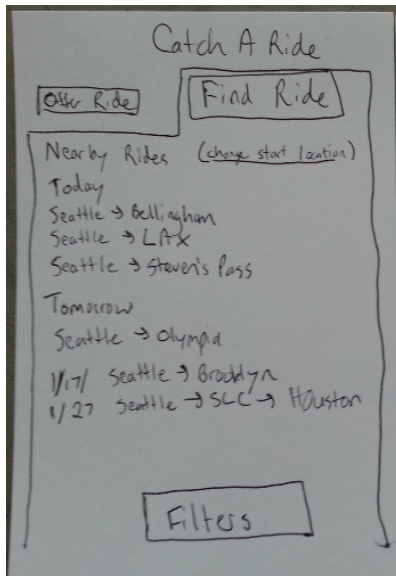 Catch A Ride
Offer Ride
Find Ride
Nearby Rides (change start location)
Today
Seattle → Bellingham
Seattle → LAX
Seattle → Steven's Pass
Tomorrow
Seattle → Olympia
1/17/ Seattle → Brooklyn
1/27 Seattle → SLC → Houston
Filters